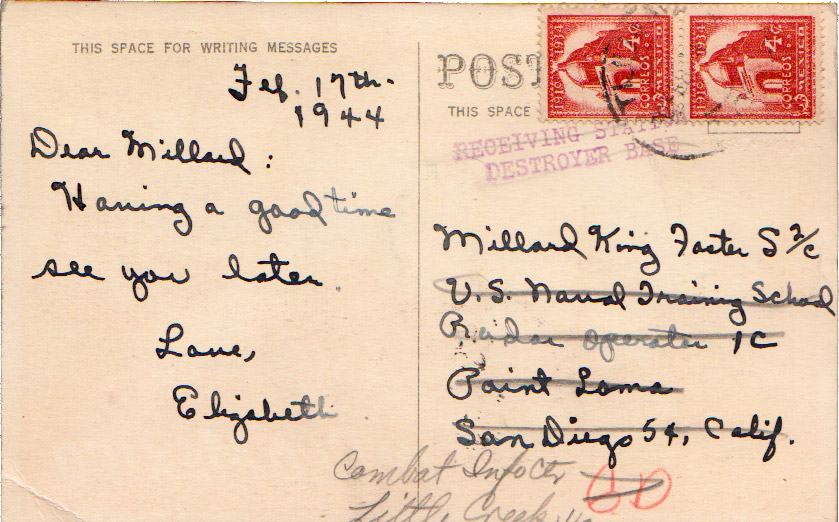 THIS SPACE FOR WRITING MESSAGES
Feb. 17th-
1944
Dear Millard:
Having a good time
see you later.
Love,
Elizabeth
POST
THIS SPACE
1910 1934
4¢
CORREOS
MEXICO
1910 1934
4¢
CORREOS
MEXICO
RECEIVING STATION
DESTROYER BASE
Millard King Foster S 2/c
U.S. Naval Training School
Radar Operator 1C
Point Loma
San Diego 54, Calif.
Combat Info Ctr
Little Creek, Va